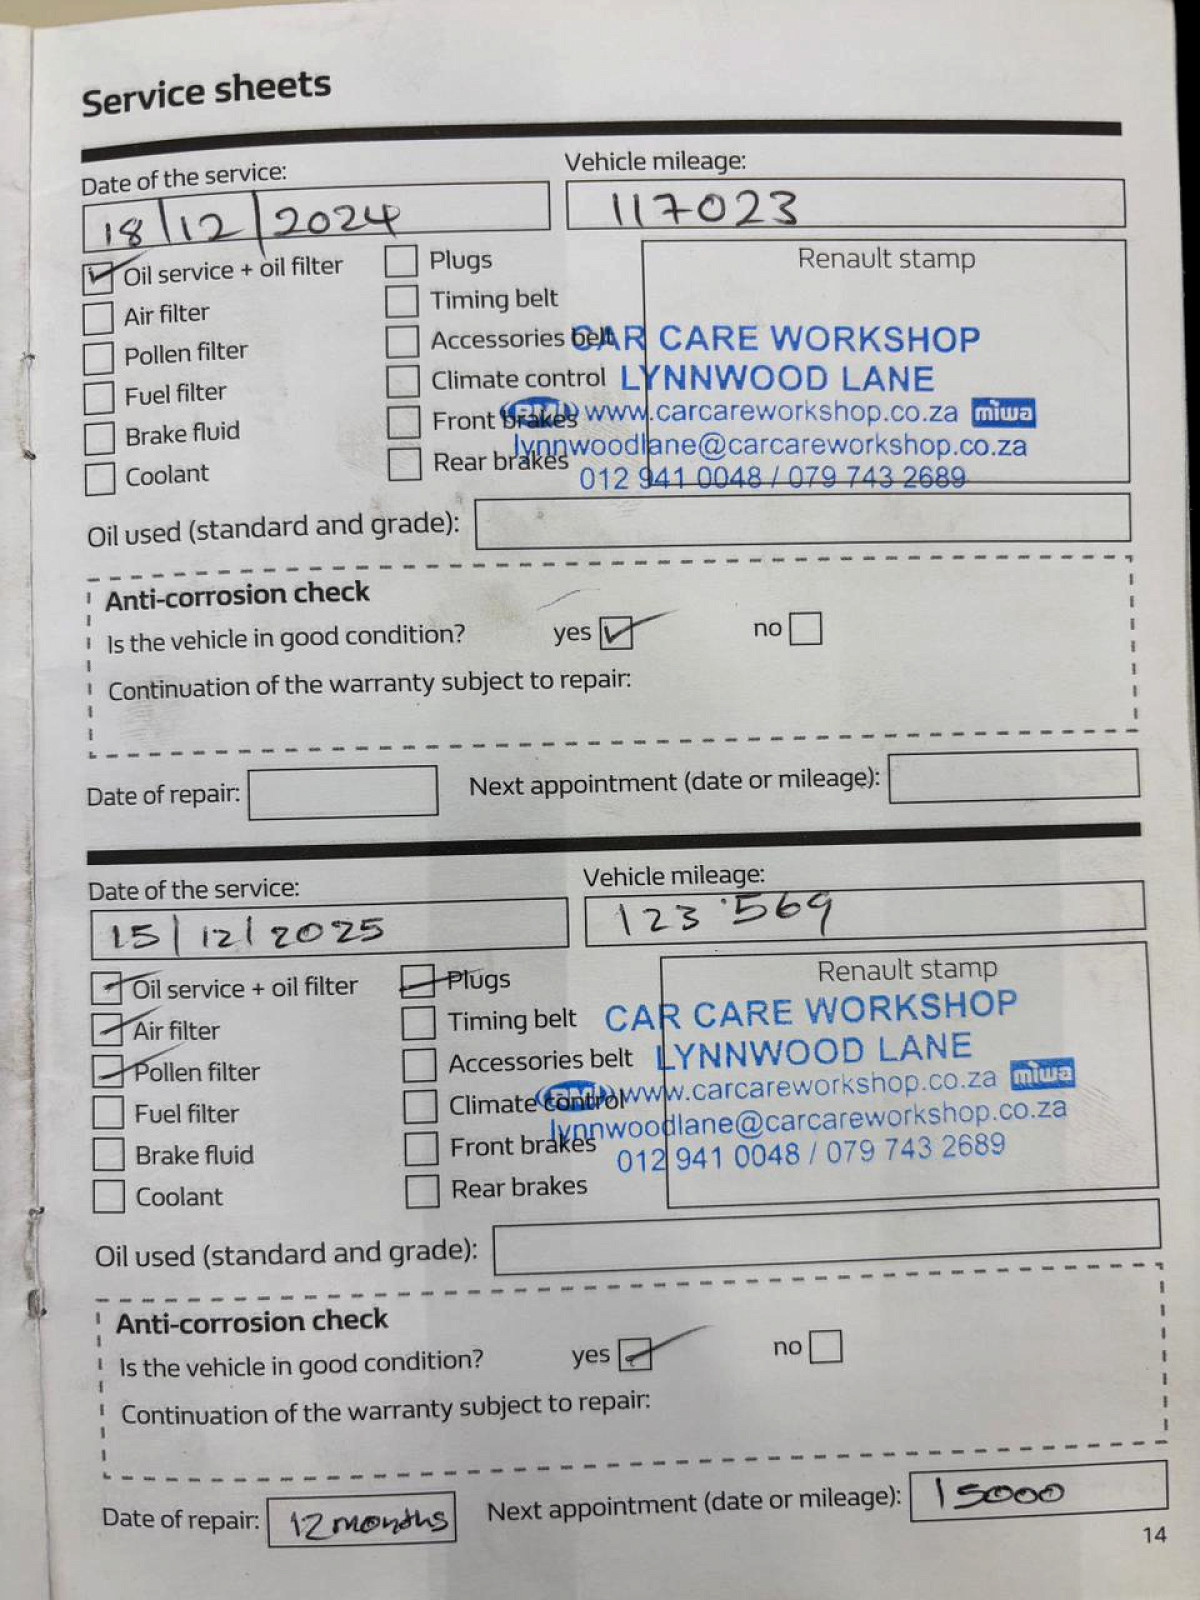 Service sheets
Date of the service:
Vehicle mileage:
18/12/2024
117023
Oil service + oil filter
Air filter
Pollen filter
Fuel filter
Brake fluid
Coolant
Plugs
Timing belt
Accessories belt
Climate control
Front brakes
Rear brakes
Renault stamp
CAR CARE WORKSHOP
LYNNWOOD LANE
RMI www.carcareworkshop.co.za miwa
lynnwoodlane@carcareworkshop.co.za
012 941 0048 / 079 743 2689
Oil used (standard and grade):
Anti-corrosion check
Is the vehicle in good condition? yes no
Continuation of the warranty subject to repair:
Date of repair:
Next appointment (date or mileage):
Date of the service:
Vehicle mileage:
15/12/2025
123 569
Oil service + oil filter
Air filter
Pollen filter
Fuel filter
Brake fluid
Coolant
Plugs
Timing belt
Accessories belt
Climate control
Front brakes
Rear brakes
Renault stamp
CAR CARE WORKSHOP
LYNNWOOD LANE
RMI www.carcareworkshop.co.za miwa
lynnwoodlane@carcareworkshop.co.za
012 941 0048 / 079 743 2689
Oil used (standard and grade):
Anti-corrosion check
Is the vehicle in good condition? yes no
Continuation of the warranty subject to repair:
Date of repair: 12 months
Next appointment (date or mileage): 15000
14